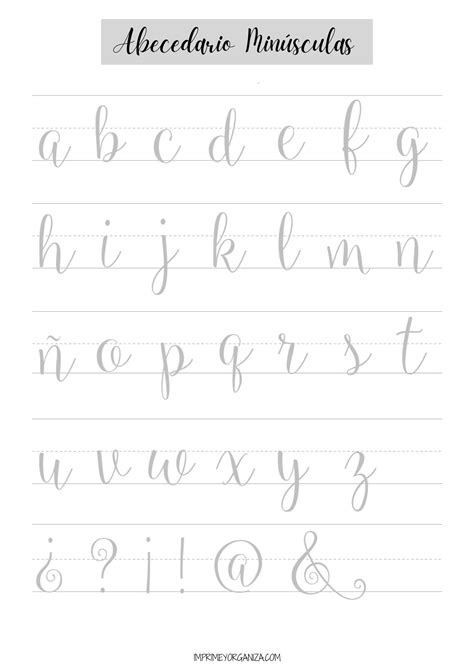 Abecedario Minúsculas
a b c d e f g
h i j k l m n
ñ o p q r s t
u v w x y z
¿ ? ¡ ! @ &
IMPRIMEYORGANIZA.COM